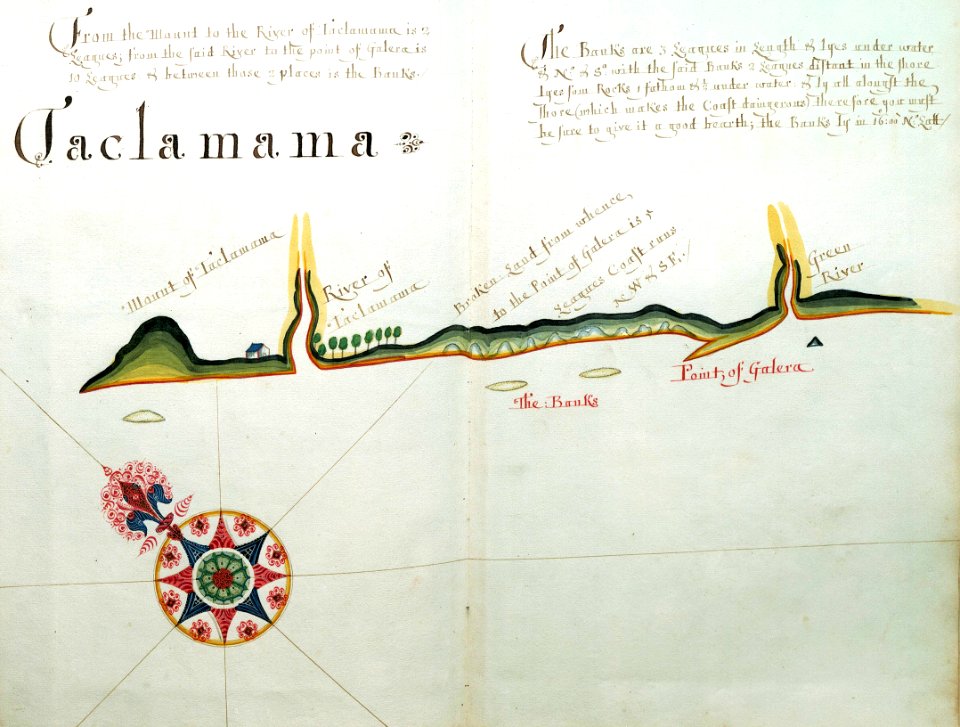 From the Mount to the River of Taclamama is 2
Leagues; from the said River to the point of Galera is
10 Leagues & between those 2 places is the Banks.
The Banks are 3 Leagues in Length & Lyes under water
& No. & So. with the said Banks 2 Leagues distant in the shore
Lyes som Rocks 1 fathom & ½ under water & Ly all alongst the
Shore (which makes the Coast daingerous) therefore you must
be sure to give it a good bearth; the Banks Ly in 16:00 No. Latt/
Taclamama
Mount of Taclamama
River of
Taclamama
Broken Land from whence,
to the Point of Galera is 5
Leagues Coast runs
NW & SE./
Green
River
Point of Galera
The Banks